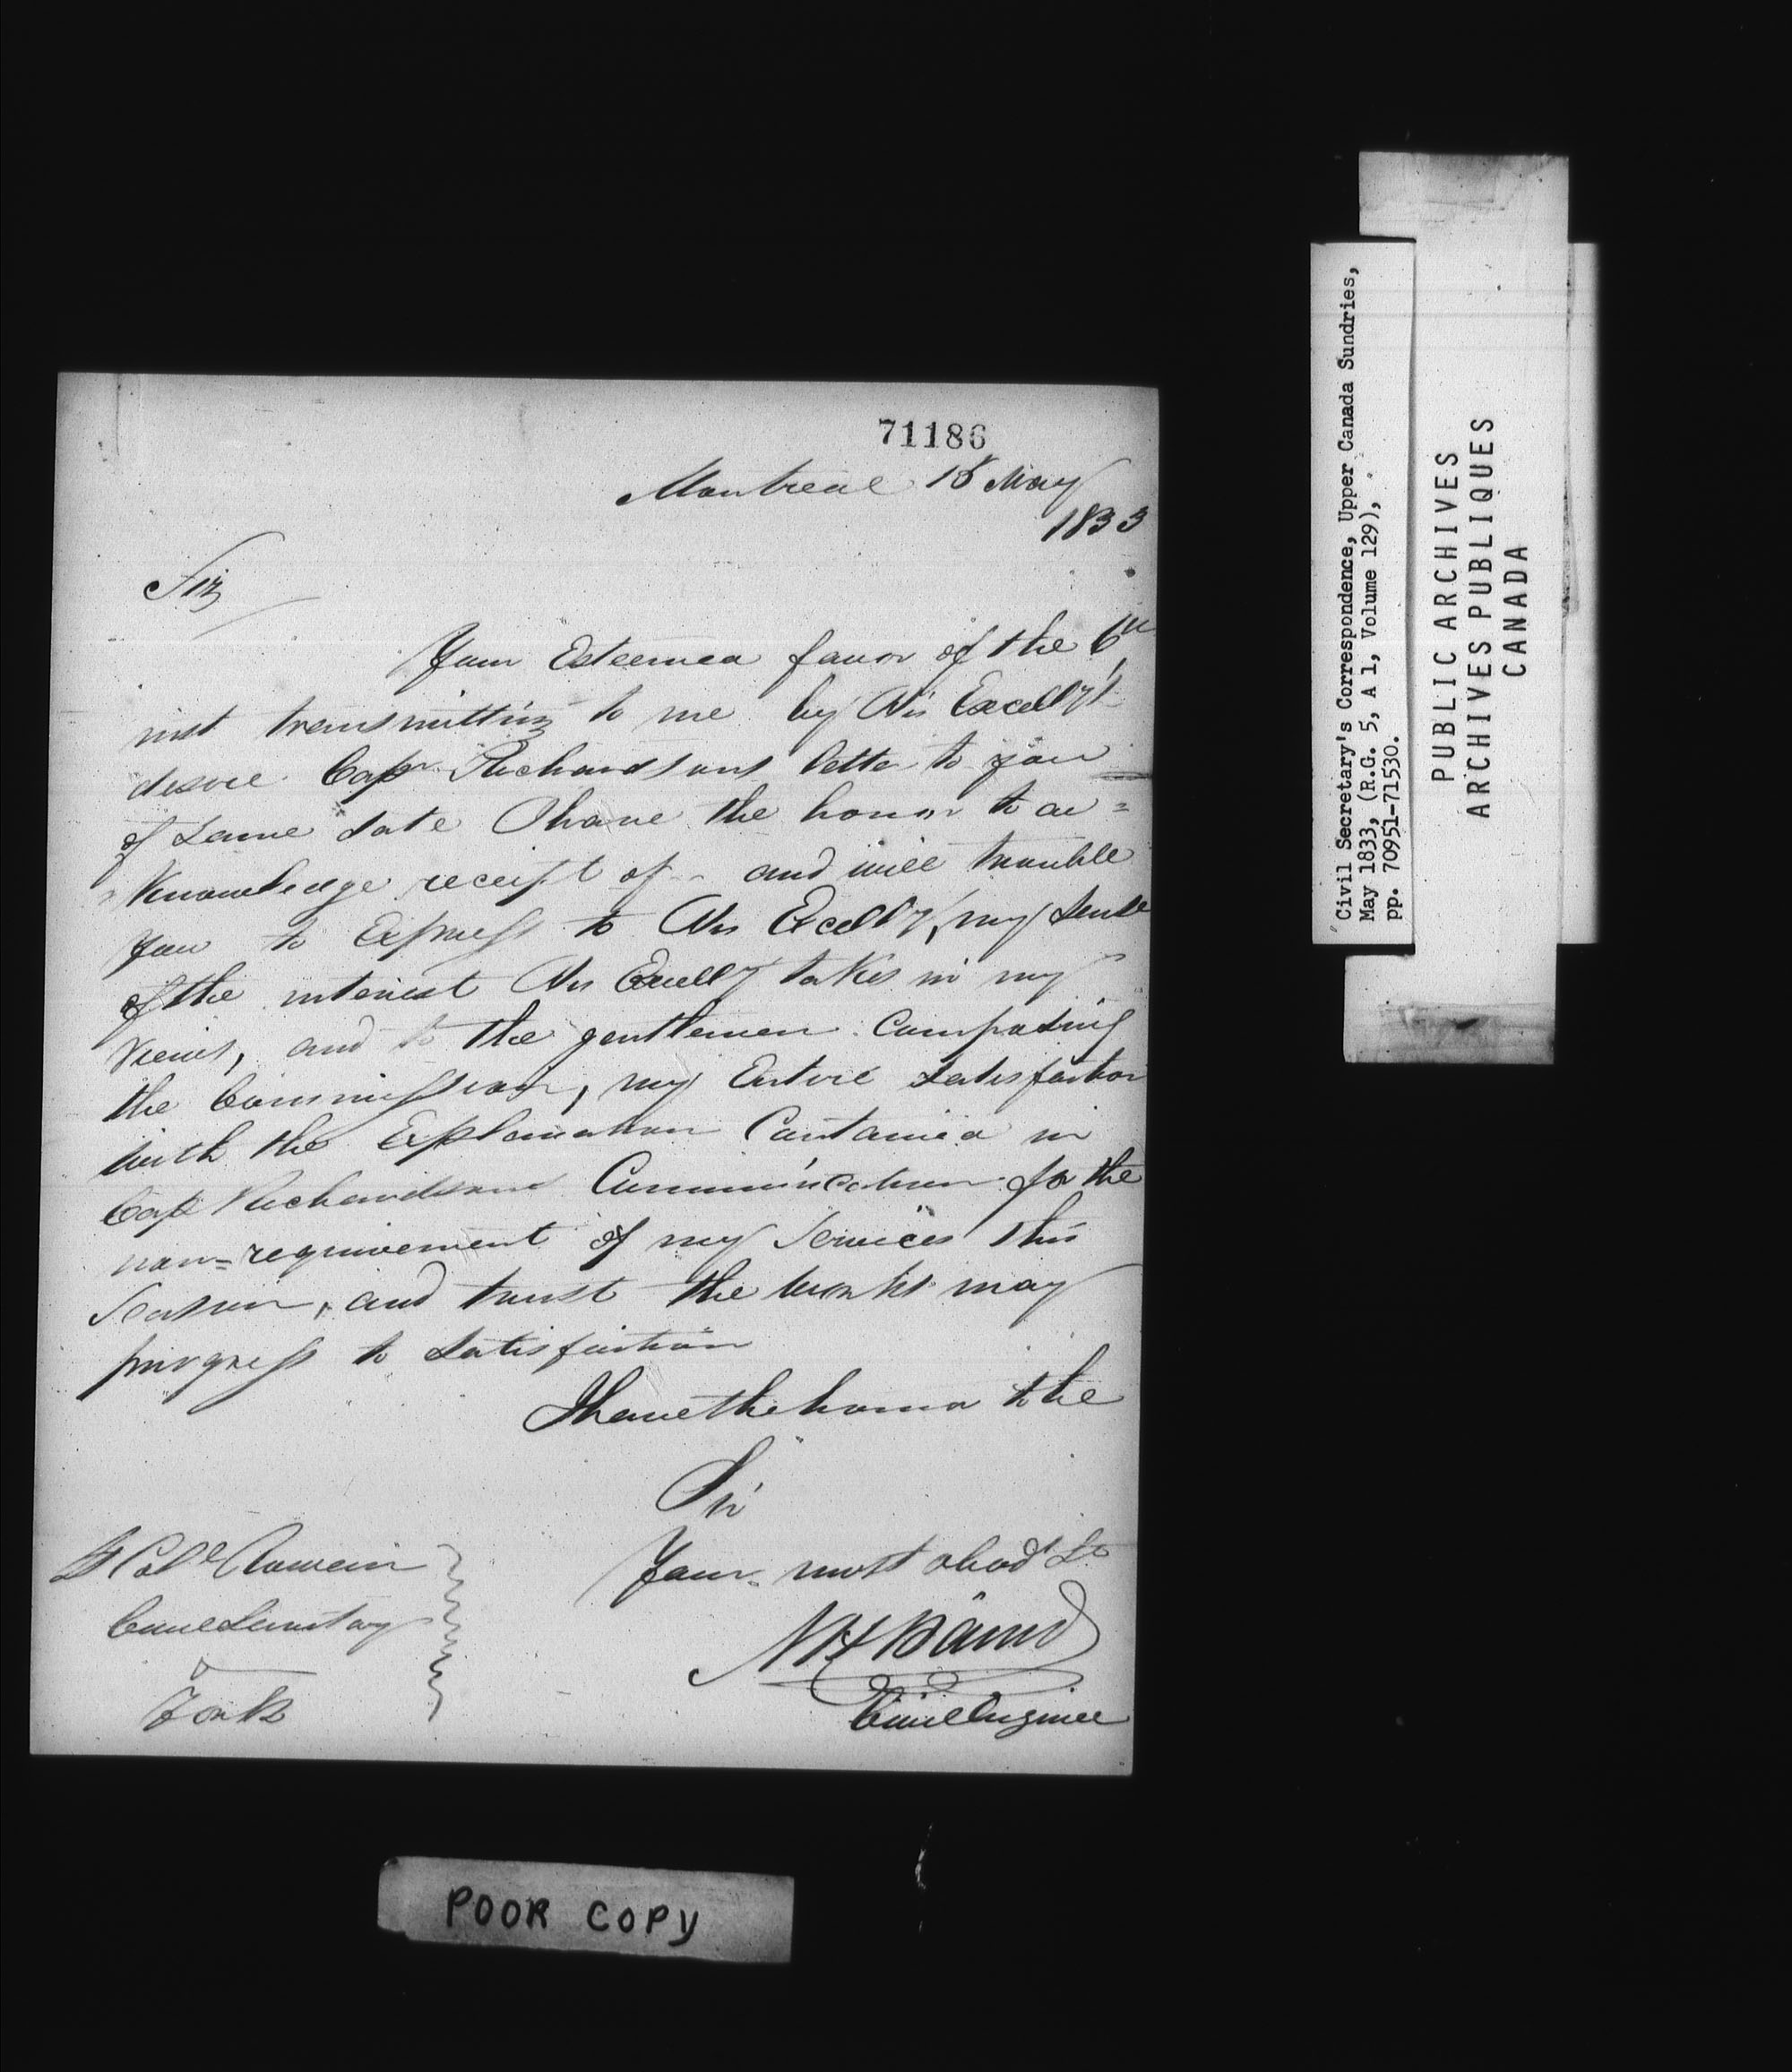 71186
Montreal 18 May
1833
Sir
Your Esteemed favor of the 6th
inst transmitting to me by His Excelly's
desire Capn Richardsons letter to you
of same date I have the honor to ac=
knowledge receipt of - and will trouble
you to Express to His Excelly, my sense
of the interest His Excelly takes in my
views, and to the gentlemen Composing
the Commission, my Entire satisfaction
with the Explanation Contained in
Capt Richardsons Communication for the
non=requirement of my Services this
Season, and trust the works may
progress to satisfaction
I have the honor to be
Sir
Your most obedt St
N H Baird
Civil Engineer
Lt Coll Rowan
Civil Secretary
York
POOR COPY
Civil Secretary's Correspondence, Upper Canada Sundries,
May 1833, (R.G. 5, A 1, Volume 129),
pp. 70951-71530.
PUBLIC ARCHIVES
ARCHIVES PUBLIQUES
CANADA